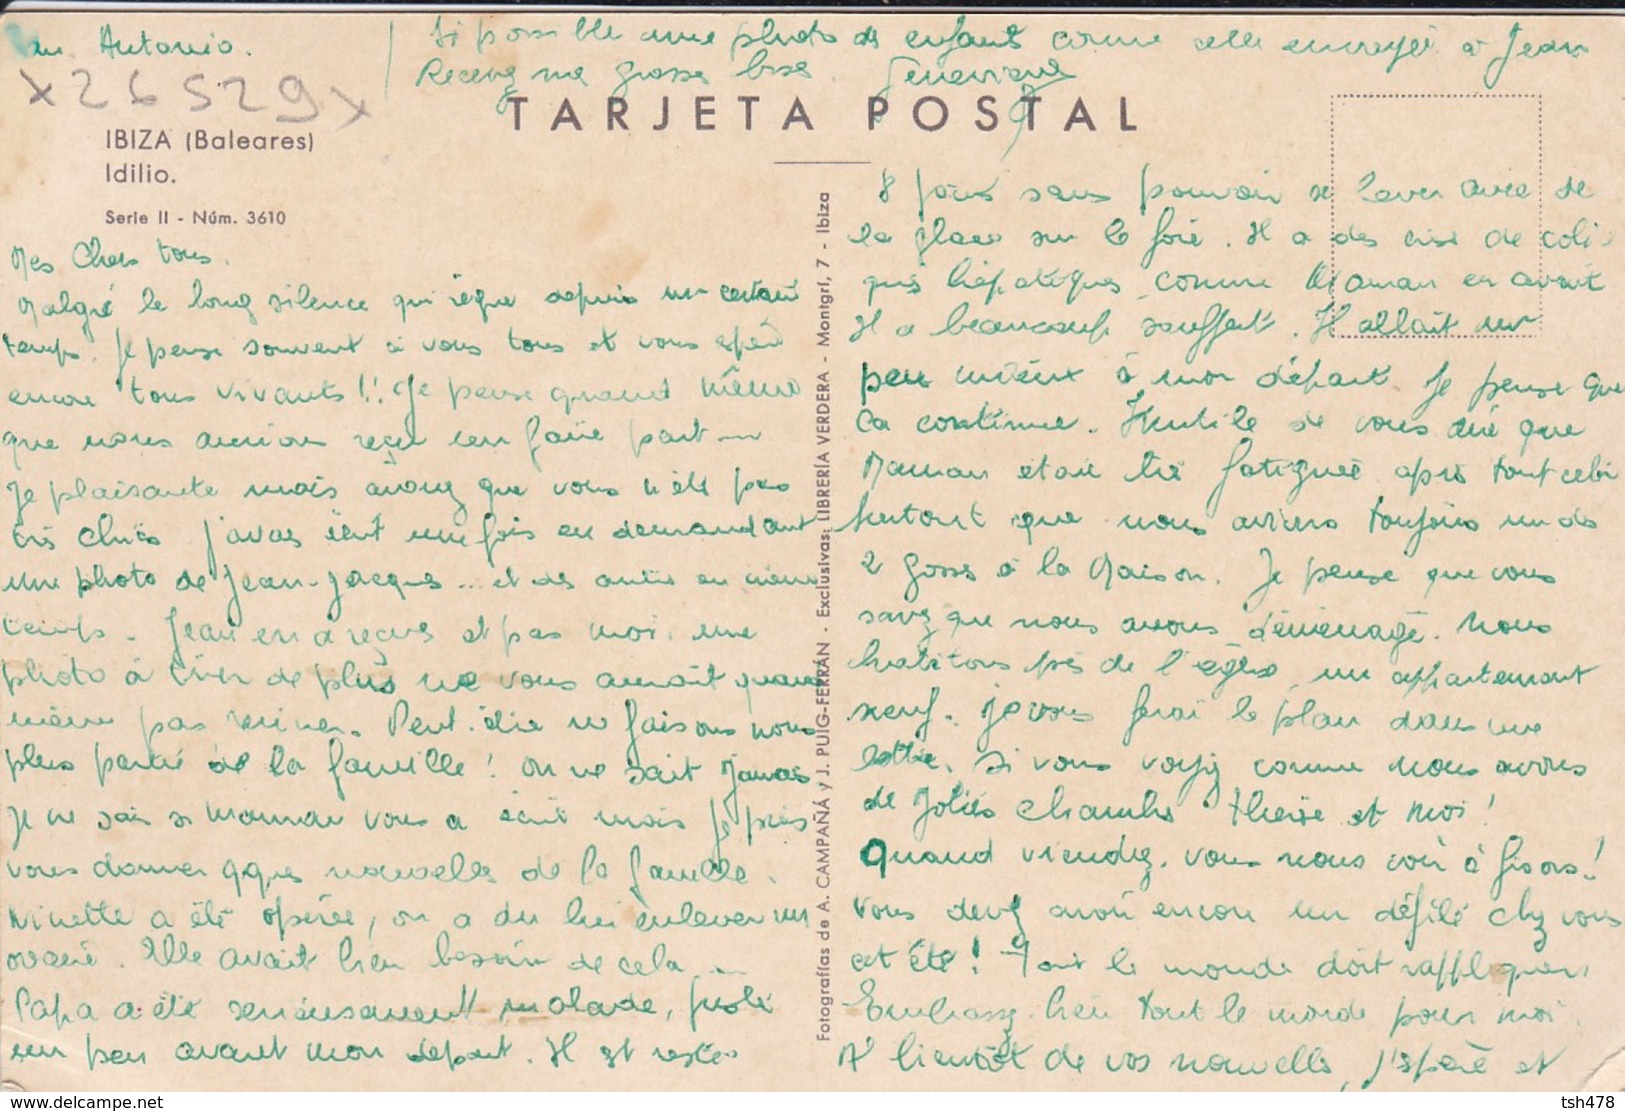 Antonio.
Si possible une photo des enfants comme celle envoyée à Jean
Recevez ma grosse bise. Geneviève
x26529x
TARJETA POSTAL
IBIZA (Baleares)
Idilio.
Serie II - Núm. 3610
Mes Chers tous.
Malgré le long silence qui règne depuis un certain
temps. Je pense souvent à vous tous et vous espère
encore tous vivants!! Je pense quand même
que nous aurions reçu un faire part
Je plaisante mais avouez que vous n'êtes pas
très chics j'avais écrit une fois en demandant
une photo de Jean-Jacques... et des autres en même
temps. Jean en a reçues et pas moi. une
photo à tirer de plus ne vous aurait quand
même pas ruiner. Peut-être ne faisons nous
plus partie de la famille! on ne sait Jamais
Je ne sais si maman vous a écrit mais je puis
vous donner qques nouvelles de la famille.
Ninette a été opérée, on a du lui enlever un
ovaire. Elle avait bien besoin de cela
Papa a été sérieusement malade,
un peu avant mon départ. Il est resté
8 jours sans pouvoir se lever avec de
la glace sur le foie. Il a des crise de coli
ques hépatiques comme Maman en avait
Il a beaucoup souffert. Il allait un
peu mieux à mon départ. Je pense que
Ca continue. Inutile de vous dire que
Maman était très fatiguée après tout cela
surtout que nous avions toujours un des
2 gosses à la Maison. Je pense que vous
savez que nous avons déménagé. Nous
habitons près de l'église, un appartement
neuf. Je vous ferai le plan dans une
lettre. Si vous voyiez comme nous avons
de Jolies chambres therèse et moi!
Quand viendrez vous nous voir à Gisors!
Vous devez avoir encore un défilé chez vous
cet été! Tout le monde doit rappliquer.
Embrassez bien tout le monde pour moi.
A bientôt de vos nouvelles, j'espère et
Fotografías de A. CAMPAÑÁ y J. PUIG-FERRÁN - Exclusivas: LIBRERÍA VERDERA - Montgrí, 7 - Ibiza
delcampe.com
tsh478